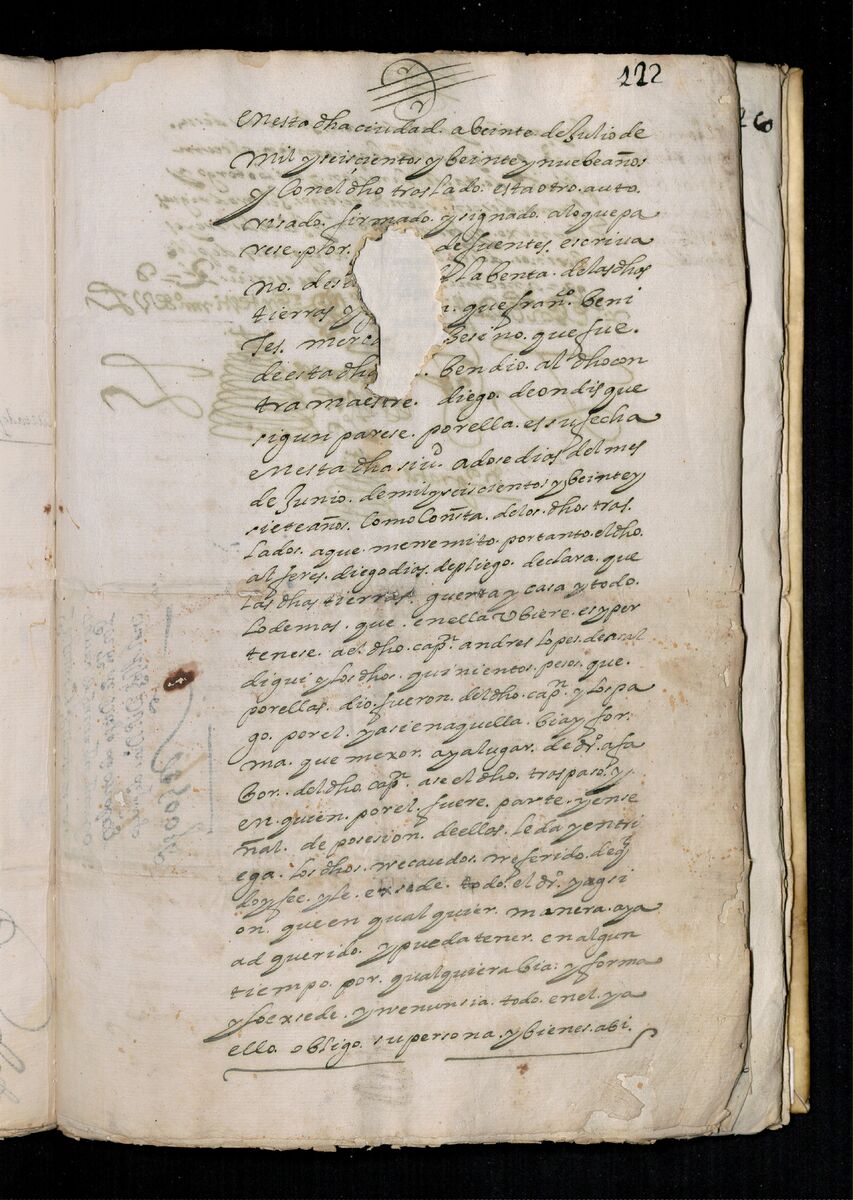 122
Enesta dha ciudad. a beinte. de Julio de
mil y seiscientos y beinte y nuebe años
y Con el dho traslado. esta otro. auto
risado. firmado. y signado. a lo que pa
rese. por. de fuentes. escriva
no. de la benta. de las dhos
tierras y que franco. beni
tes. merc Besino. que fue.
de esta dha bendio. al dho con
tramaestre. diego. de ondis que
sigun parese. por ella. es su fecha
Enesta dha siud. a dose dias del mes
de Junio. de mil y seiscientos y beinte y
siete años. Como Consta. de los. dhos tras
lados. a que. me rremito. por tanto. el dho.
alferes. diego dias. de pliego. declara. que
las dhas tierras. guerta y casa y todo.
lo demas. que. en ella Ubiere. es y per
tenese. al dho. capn. andres lopes. de
digui y los dho. quinientos pesos. que.
por ellas. dio. fueron. del dho. capn. y los pa
go. por el. y asi en aquella. bia y for
ma. que mexor. aya lugar. de dro. a fa
bor. del dho. capn. ase el dho. traspaso. y
en quien. por el. fuere. parte. y en se
ñal. de posesion. de ellos. le da y entri
ega. los dhos. rrecaudos. rreferido. de q
doy fee. y le. exsede. todo. el dro. y agsi
on. que en qualquier. manera. aya
ad querido. y pueda tener. en algun
tiempo. por. qualquiera bia. y forma
y lo exsede. y rrenunsia. todo. en el. y a
ello. obligo. su persona. y bienes. abi.